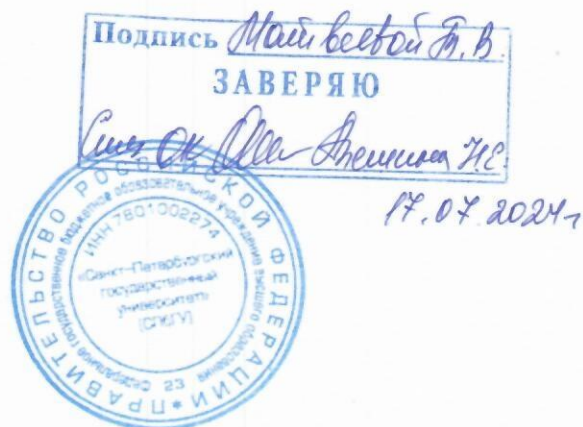 Подпись Матвеевой Т.В.
ЗАВЕРЯЮ
Спец ОК
17.07.2024г
ПРАВИТЕЛЬСТВО РОССИЙСКОЙ ФЕДЕРАЦИИ *
федеральное государственное бюджетное образовательное учреждение высшего образования
ИНН 7801002274
«Санкт-Петербургский
государственный
университет»
(СПбГУ)
23